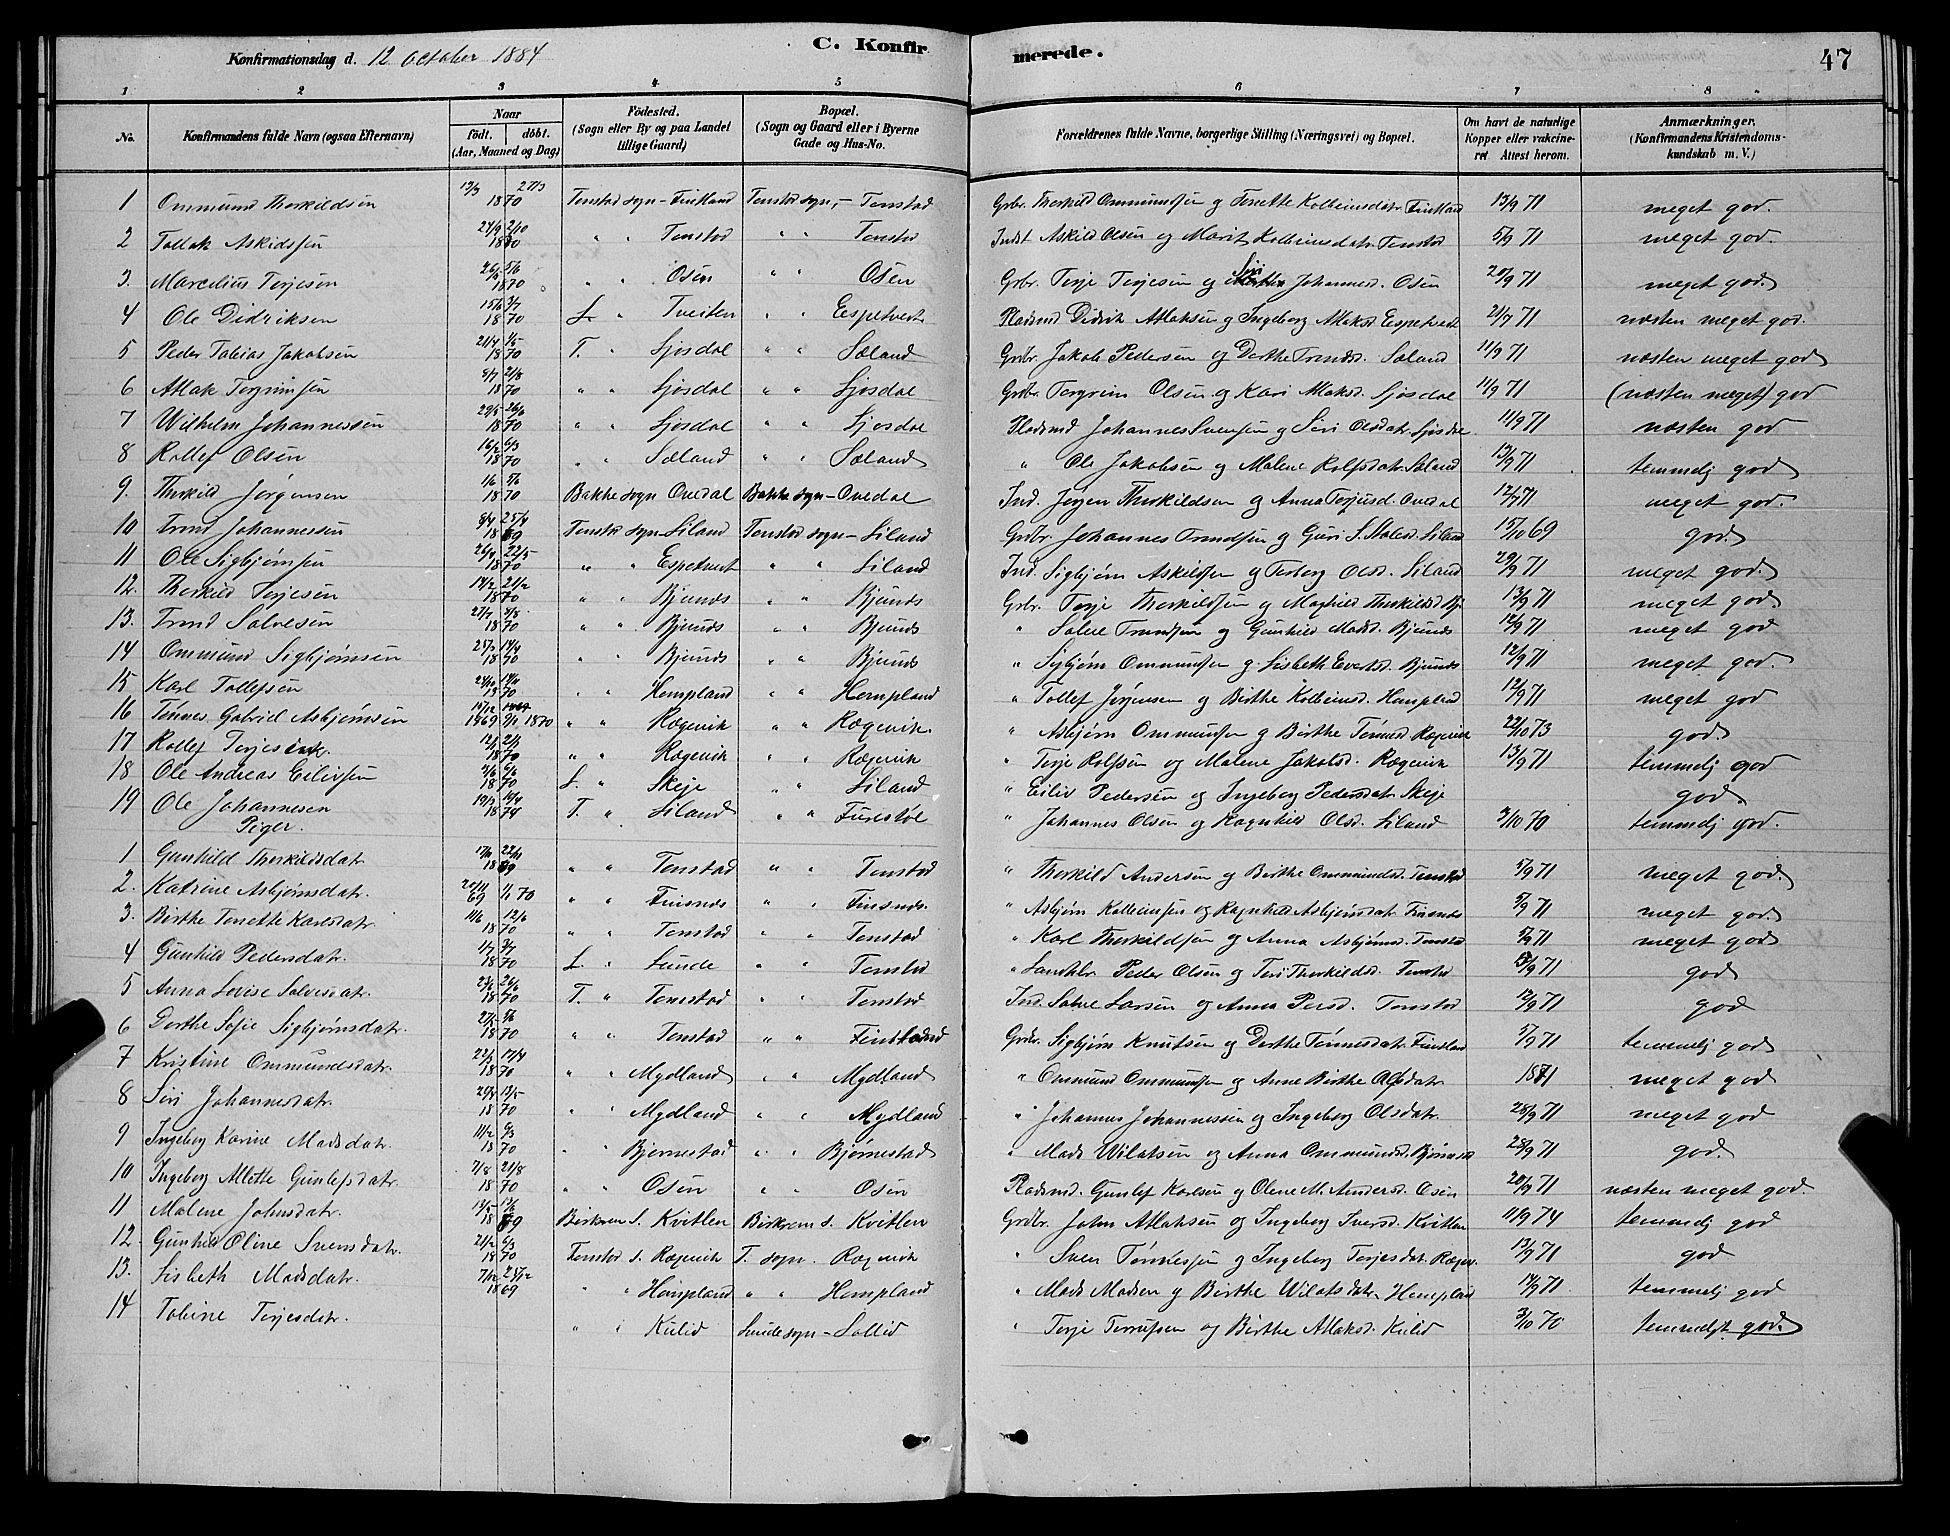 Konfirmationsdag d. 12 October 1884
C. Konfirmerede.
47
1 2 3 4 5 6 7 8
No. Konfirmandens fulde Navn (ogsaa Efternavn) Naar födt. döbt. (Aar, Maaned og Dag) Födested. (Sogn eller By og paa Landet tillige Gaard) Bopæl. (Sogn og Gaard eller i Byerne Gade og Hus-No. Forældrenes fulde Navne, borgerlige Stilling (Næringsvei) og Bopæl. Om havt de naturlige Kopper eller vakcineret Attest herom. Anmærkninger. (Konfirmandens Kristendomskundskab m. V.)
1 Ommund Thorkildsen 1870 27/3 Tonstad sogn - Fintland Tonstad sogn, - Tonstad Grbr. Thorkild Ommundsen og Tonette Kolbeinsdatr. Fintland 13/9 71 meget god.
2 Tollak Askildsen 1870 2/10 " " Tonstad " " Tonstad Indst Askild Olsen og Marit Kolbeinsdatr. Tonstad 5/9 71 meget god.
3. Marcelius Terjesen 1870 5/6 " " Osen " " Osen Grbr. Terje Terjesen og Siri Johannesd. Osen 20/9 71 meget god.
4 Ole Didriksen 15/6 3/7 1870 L " Tveiten " " Espetvedt Pladsmd Didrik Atlaksen og Ingeborg Atlaksd Espetvedt 21/9 71 næsten meget god.
5 Peder Tobias Jakobsen 21/4 1/5 1870 T. " Sjosdal " " Sæland Grbr. Jakob Pedersen og Dorthe Trondsd. Sæland 11/9 71 næsten meget god
6 Atlak Torgrimsen 21/8 1870 " " Sjosdal " " Sjosdal Grbr. Torgrim Olsen og Kari Atlaksd. Sjosdal 11/9 71 (næsten meget) god
7 Wilhelm Johannessen 29/5 26/6 1870 " " Sjosdal " " Sjosdal Pladsmd Johannes Svensen og Siri Olsdatr. Sjosdal 11/9 71 næsten god
8 Rollef Olsen 16/2 6/3 1870 " " Sæland " " Sæland " Ole Jakobsen og Malene Rolfsdatr. Sæland 13/9 71 temmelig god
9. Thorkild Jörgensen 1/6 5/6 1870 Bakke sogn Ovedal Bakke sogn - Ovedal Ind. Jörgen Thorkildsen og Anna Terjesd. Ovedal 12/9 71 meget god.
10 Trond Johannessen 25/4 1869 Tonstad sogn Liland Tonstad sogn - Liland Grbr. Johannes Trondsen og Guri S. Liland 15/10 69 god.
11 Ole Sigbjörnsen 22/5 1870 " " Espetvedt " " Liland Ind. Sigbjörn Askildsen og Torborg Olsd. Liland 29/9 71 meget god.
12. Thorkild Terjesen 14/2 21/2 1870 " " Bjunds " " Bjunds Grbr. Terje Thorkildsen og Maghild Thorkildsd. Bj. 13/9 71 meget god
13. Trond Salvesen 27/7 1870 " " Bjunds " " Bjunds " Salve Trondsen og Gunhild Madsd. Bjunds 12/9 71 meget god
14 Ommund Sigbjörnsen 1870 " " Bjunds " " Bjunds " Sigbjörn Ommundsen og Lisbeth Evertsd. Bjunds 12/9 71 meget god.
15 Karl Tollefsen 1870 " " Hompland " " Hompland " Tollef Jörgensen og Birthe Kolbeinsd. Hompland 12/9 71 meget god
16 Tönnes Gabriel Asbjörnsen 1869 1870 " " Rægevik " " Rægevik. " Asbjörn Ommundsen og Birthe Tönnesd. Rægevik 22/10 73 god
17 Rollef Terjesen 1870 " " Rægevik " " Rægevik " Terje Rolfsen og Malene Jakobsd. Rægevik 13/9 71 temmelig god
18 Ole Andreas Eilivsen 1870 L. " Skeje " " Liland " Eiliv Pedersen og Ingeborg Pedersdatr Skeje god
19 Ole Johannesen T. " Liland " " Fuestöl " Johannes Olsen og Ragnhild Olsd. Liland 3/10 70 temmelig god.
Piger.
1 Gunhild Thorkildsdatr. 1869 " " Tonstad " " Tonstad " Thorkild Andersen og Birthe Ommundsd. Tonstad 5/9 71 meget god.
2. Katrine Asbjörnsdatr. 20/11 69 1/1 70 " " Finsnes " " Finsnes. " Asbjörn Kolbeinsen og Ragnhild Asbjörnsdatr. Finsnes 5/9 71 meget god
3. Birthe Tonette Karlsdatr. 12/6 1870 " " Tonstad " " Tonstad " Karl Thorkildsen og Anna Asbjörnsd. Tonstad 5/9 71 meget god
4 Gunhild Pedersdatr. 1/7 3/7 1870 L. " Lunde " " Tonstad " Landhdlr. Peder Olsen og Teri Thorkildsd. Tonstad 13/9 71 god
5 Anna Lovise Salvesdatr. 26/6 1870 T. " Tonstad " " Tonstad Ind. Salve Larsen og Anna Persd. Tonstad 12/9 71 god
6 Dorthe Sofie Sigbjörnsdatr. 27/5 1870 " " Tonstad " " Fintland Grbr. Sigbjörn Knutsen og Dorthe Tönnesdatr. Fintland 5/9 71 temmelig god
7 Kristine Ommundsdatr. 22/3 17/4 1870 " " Mydland " " Mydland " Ommund Ommundsen og Anne Birthe Olsdatr 1871 meget god
8 Siri Johannesdatr. 1870 " " Mydland " " Mydland " Johannes Johannessen og Ingeborg Olsdatr. 28/9 71 meget god
9 Ingeborg Karine Madsdatr. 11/2 6/3 1870 " " Bjørnestad " " Bjørnestad " Mads Wilatsen og Anna Ommundsd. Bjørnest 28/9 71 god.
10 Ingeborg Atlette Gunlefsdatr. 7/8 21/8 1870 " " Osen " " Osen Pladsmd. Gunlef Karlsen og Olene M. Andersd. Osen 20/9 71 næsten meget god.
11 Malene Johnsdatr. 1869 Birkrem S. Kvitlen Birkrem S. Kvitlen Grdbr. John Atlaksen og Ingeborg Iversd. Kvitlen 11/9 74 temmelig god
12. Gunhild Oline Svensdatr. 21/2 6/3 1870 Tonstad S. Rægevik T. sogn. Rægevik " Sven Tönnesen og Ingeborg Terjesdatr. Ræger. 13/9 71 god
13. Lisbeth Madsdatr. 1869 " " Hompland " " Hompland " Mads Madsen og Birthe Wilatsdatr. Hompland 71 temmelig god
14 Tobine Terjesdatr. " " Kulid Lunde sogn - Sollid " Terje og Birthe Atlaksd. Kulid 3/10 70 temmelig god.